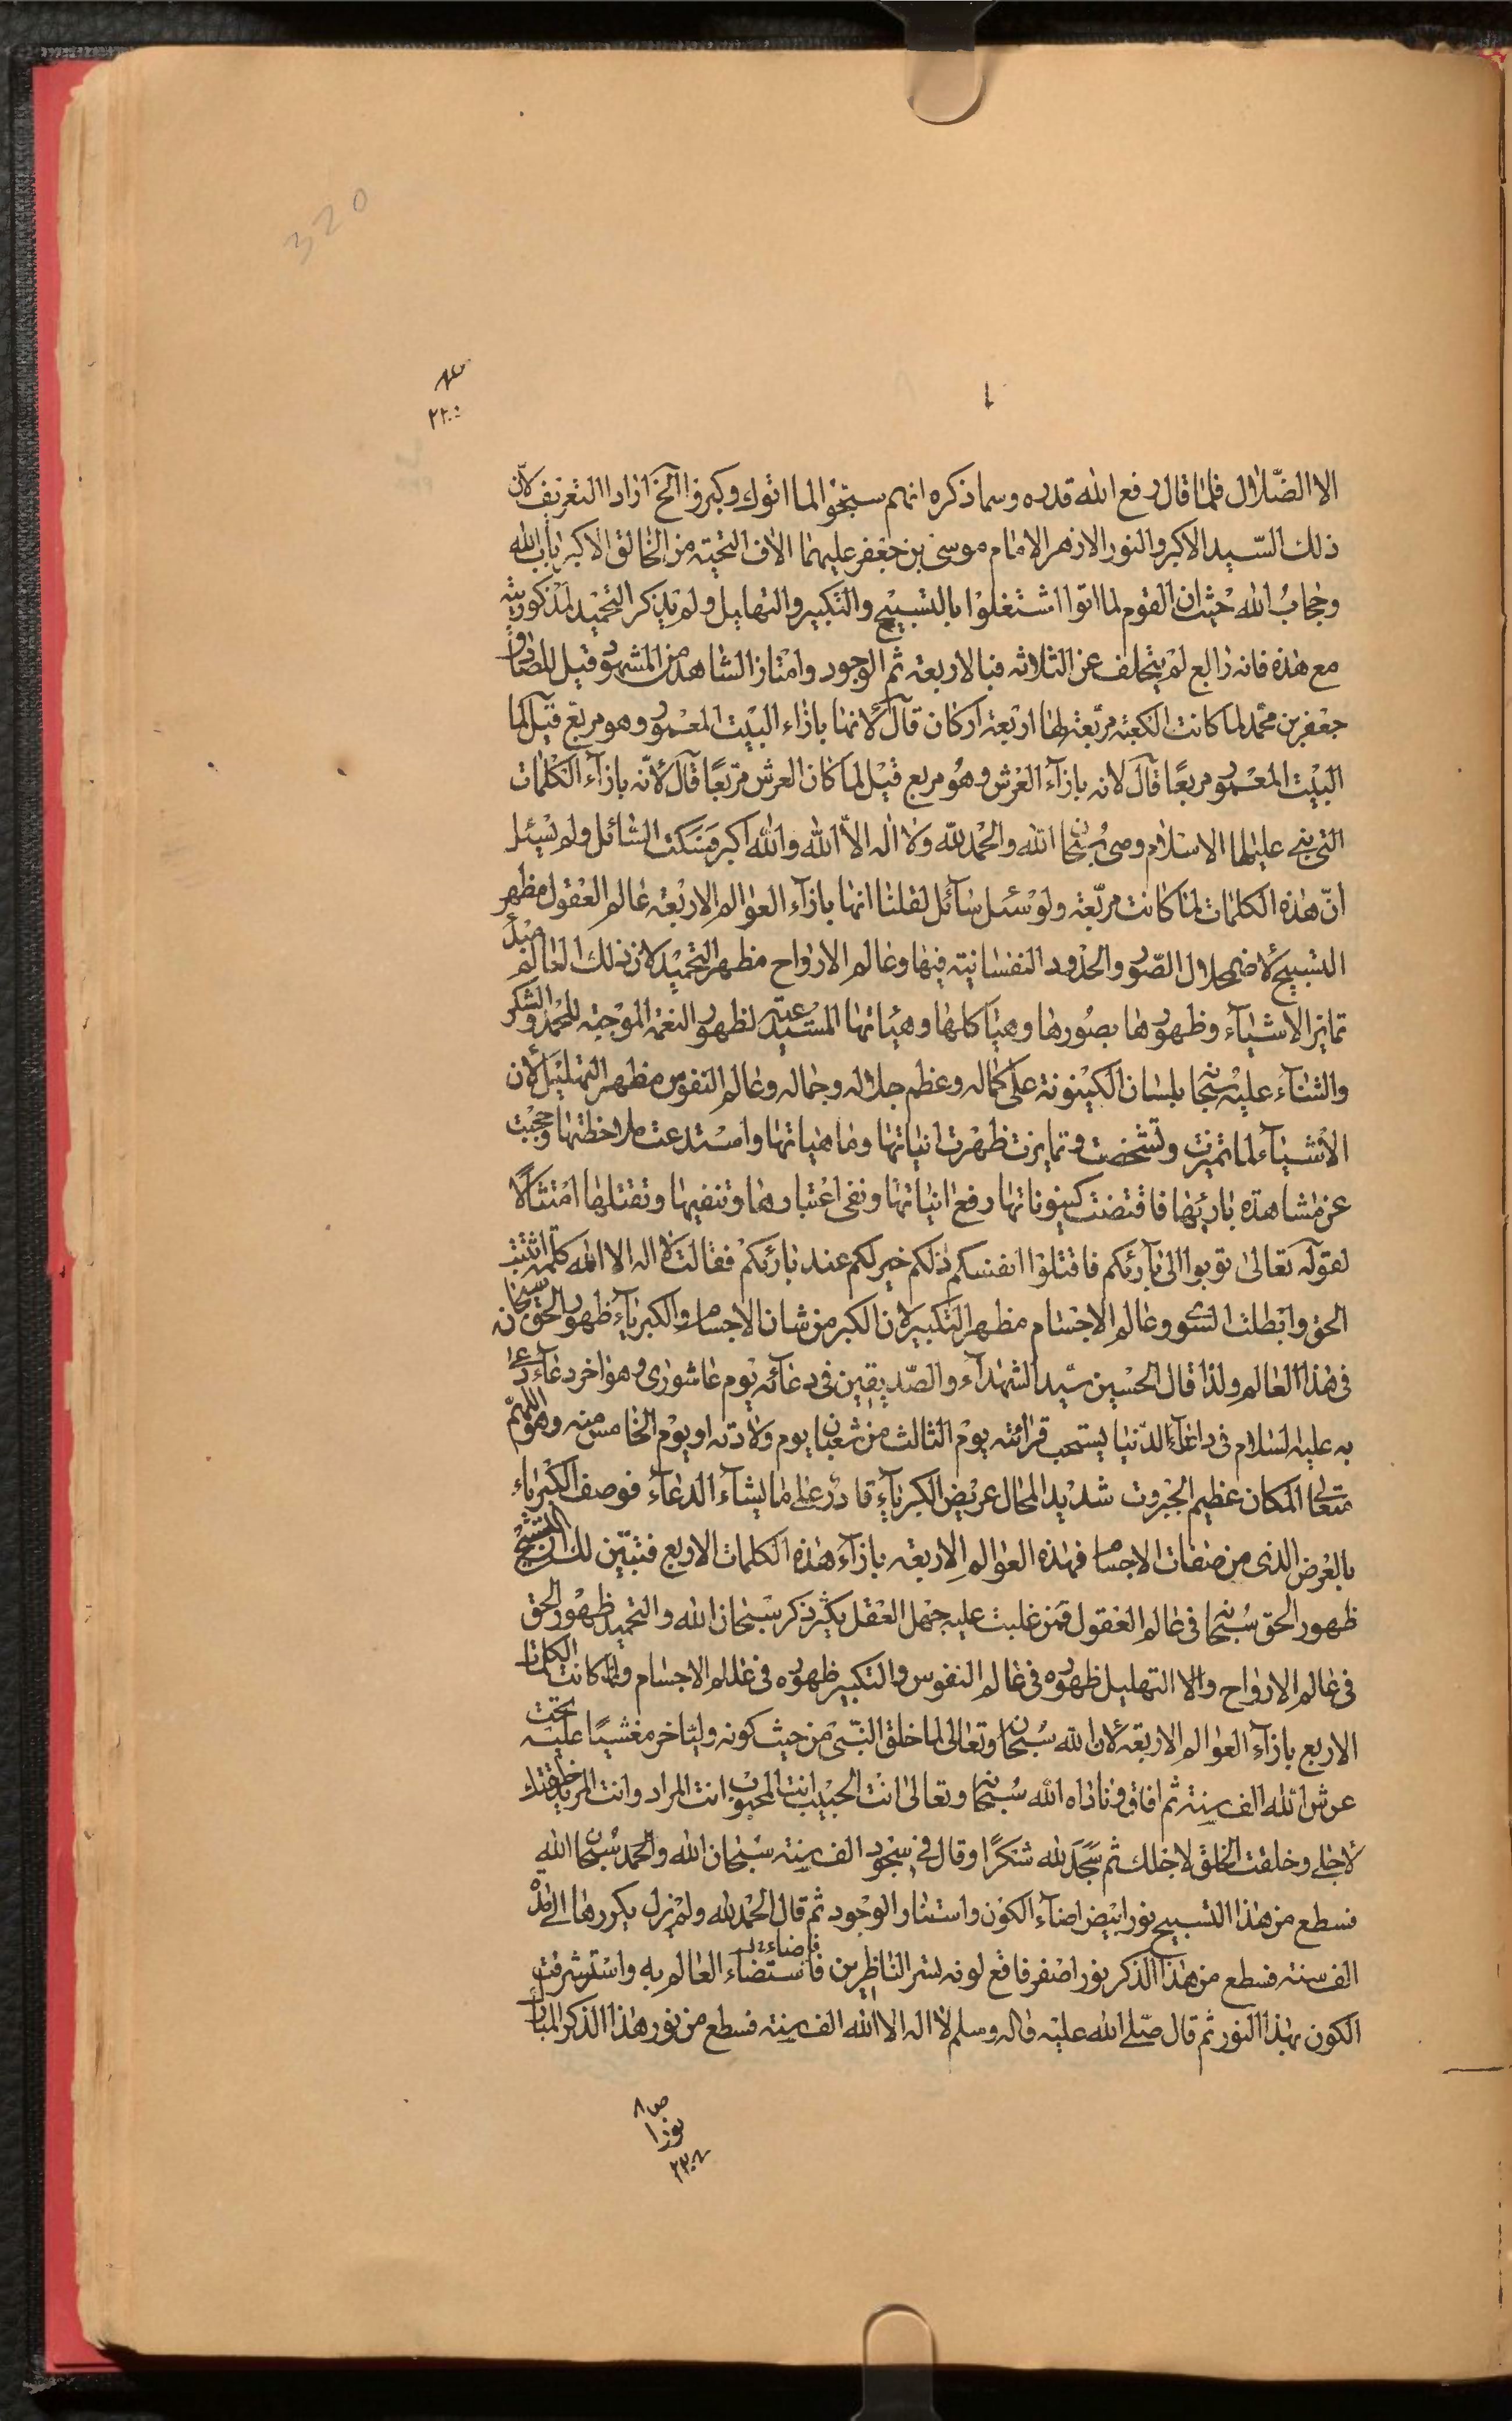 320
٢٢٠
الا الضّلال فلمّا قال رفع الله قدره وسما ذكره انهم سبّحوا لما اتوك وكبروا الخ اراد التعريف لانّ
ذلك السّيد الاكبر والنور الازهر الامام موسى بن جعفر عليهما الاف التحيّة من الخالق الاكبر باب الله
وحجاب الله حيث ان القوم لما اتوا اشتغلوا بالتسبيح والتكبير والتهليل ولم يذكر التحميد
مع هذه فانه رابع لم يتخلف عن الثلاثه فبالاربعة ثم الوجود وامتاز الشاهد من المشهود قيل للصادق
جعفر بن محمد لما كانت الكعبة مربّعة لها اربعة اركان قال لانها بازاء البيت المعمور وهو مربع قيل لما
البيت المعمور مربعًا قال لانه بازآء العرش وهو مربع قيل لما كان العرش مربعًا قال لانّه بازآء الكلمات
التى بنى عليها الاسلام وهى سُبحان الله والحمد لله ولا اله الاّ الله والله اكبر فسكت السّائل ولم يسئل
انّ هذه الكلمات لما كانت مربّعة ولو سئل سآئل لقلنا انها بازآء العوالم الاربعة عالم العقول مظهر
التسبيح لاضمحلال الصّور والحدود النفسانية فيها وعالم الارواح مظهر التحميد لان ذلك العالم مبدأ
تمايز الاشيآء وظهورها بصورها وهياكلها وهيأتها المستدعية لظهور النعمة الموجبة للحمد والشكر
والثنآء عليه سبحانه بلسان الكينونة على كماله وعظم جلاله وجماله وعالم النفوس مظهر التهليل لان
الاشيآء لما تميزت وتشخصت وتمايزت ظهرت انياتها وماهياتها واستدعت ملاحظتها وحجبت
عن مشاهدة بارئها فاقتضت كينوناتها رفع انياتها ونفى اعتبارها وتنفيها وتقتلها امتثالًا
لقوله تعالى توبوا الى بآرئكم فاقتلوا انفسكم ذلكم خير لكم عند بارئكم فقالت لا اله الا الله كلمة اثبتت
الحق وابطلت السّوى وعالم الاجسام مظهر التكبير لان الكبر من شان الاجسام والكبريآء ظهور الحق سبحانه
فى هذا العالم ولذا قال الحسين سيّد الشهدآء والصّديقين فى دعآئه يوم عاشورى وهو اخر دعآء دعا
به عليه السلام فى دار الدّنيا يستحب قرائته يوم الثالث من شعبان يوم ولادته او يوم الخامس منه وهو اللهمّ
متعالى المكان عظيم الجبروت شديد المحال عريض الكبريآء قادر على ما يشآء الدعآء فوصف الكبرياء
بالعرض الذى من صفات الاجسام فهذه العوالم الاربعة بازآء هذه الكلمات الاربع فتبيّن لك ان التسبيح
ظهور الحق سُبحانه فى عالم العقول فمن غلبت عليه جهل العقل يكثر ذكر سبحان الله والتحميد ظهور الحق
فى عالم الارواح والا التهليل ظهوره فى عالم النفوس والتكبير ظهوره فى عالم الاجسام ولما كانت الكلمات
الاربع بازآء العوالم الاربعة لان الله سُبحان وتعالى لما خلق النّبى من حيث كونه ولياّ خر مغشيًا عليه تحت
عرش الله الف سنة ثم افاق وناداه الله سُبحانه وتعالى انت الحبيب انت المحبوب انت المراد وانت المريد خلقتك
لاجلى وخلقت الخلق لاجلك ثم سَجَدَ لله شكرًا وقال فى سجوده الف سنة سُبحان الله والحمد سُبحان الله
فسطع من هذا التسبيح نور ابيض اضآء الكون واستنار الوجود ثم قال الحمد لله ولم يزل يكورها الى مدّ
الف سنة فسطع من هذا الذكر نور اصفر فاقع لونه تسر الناظرين فاستضاء العالم به واستشرقت
الكون بهذا النور ثم قال صلى الله عليه واله وسلم لا اله الا الله الف سنة فسطع من نور هذا الذكر المبارك
ص ٨